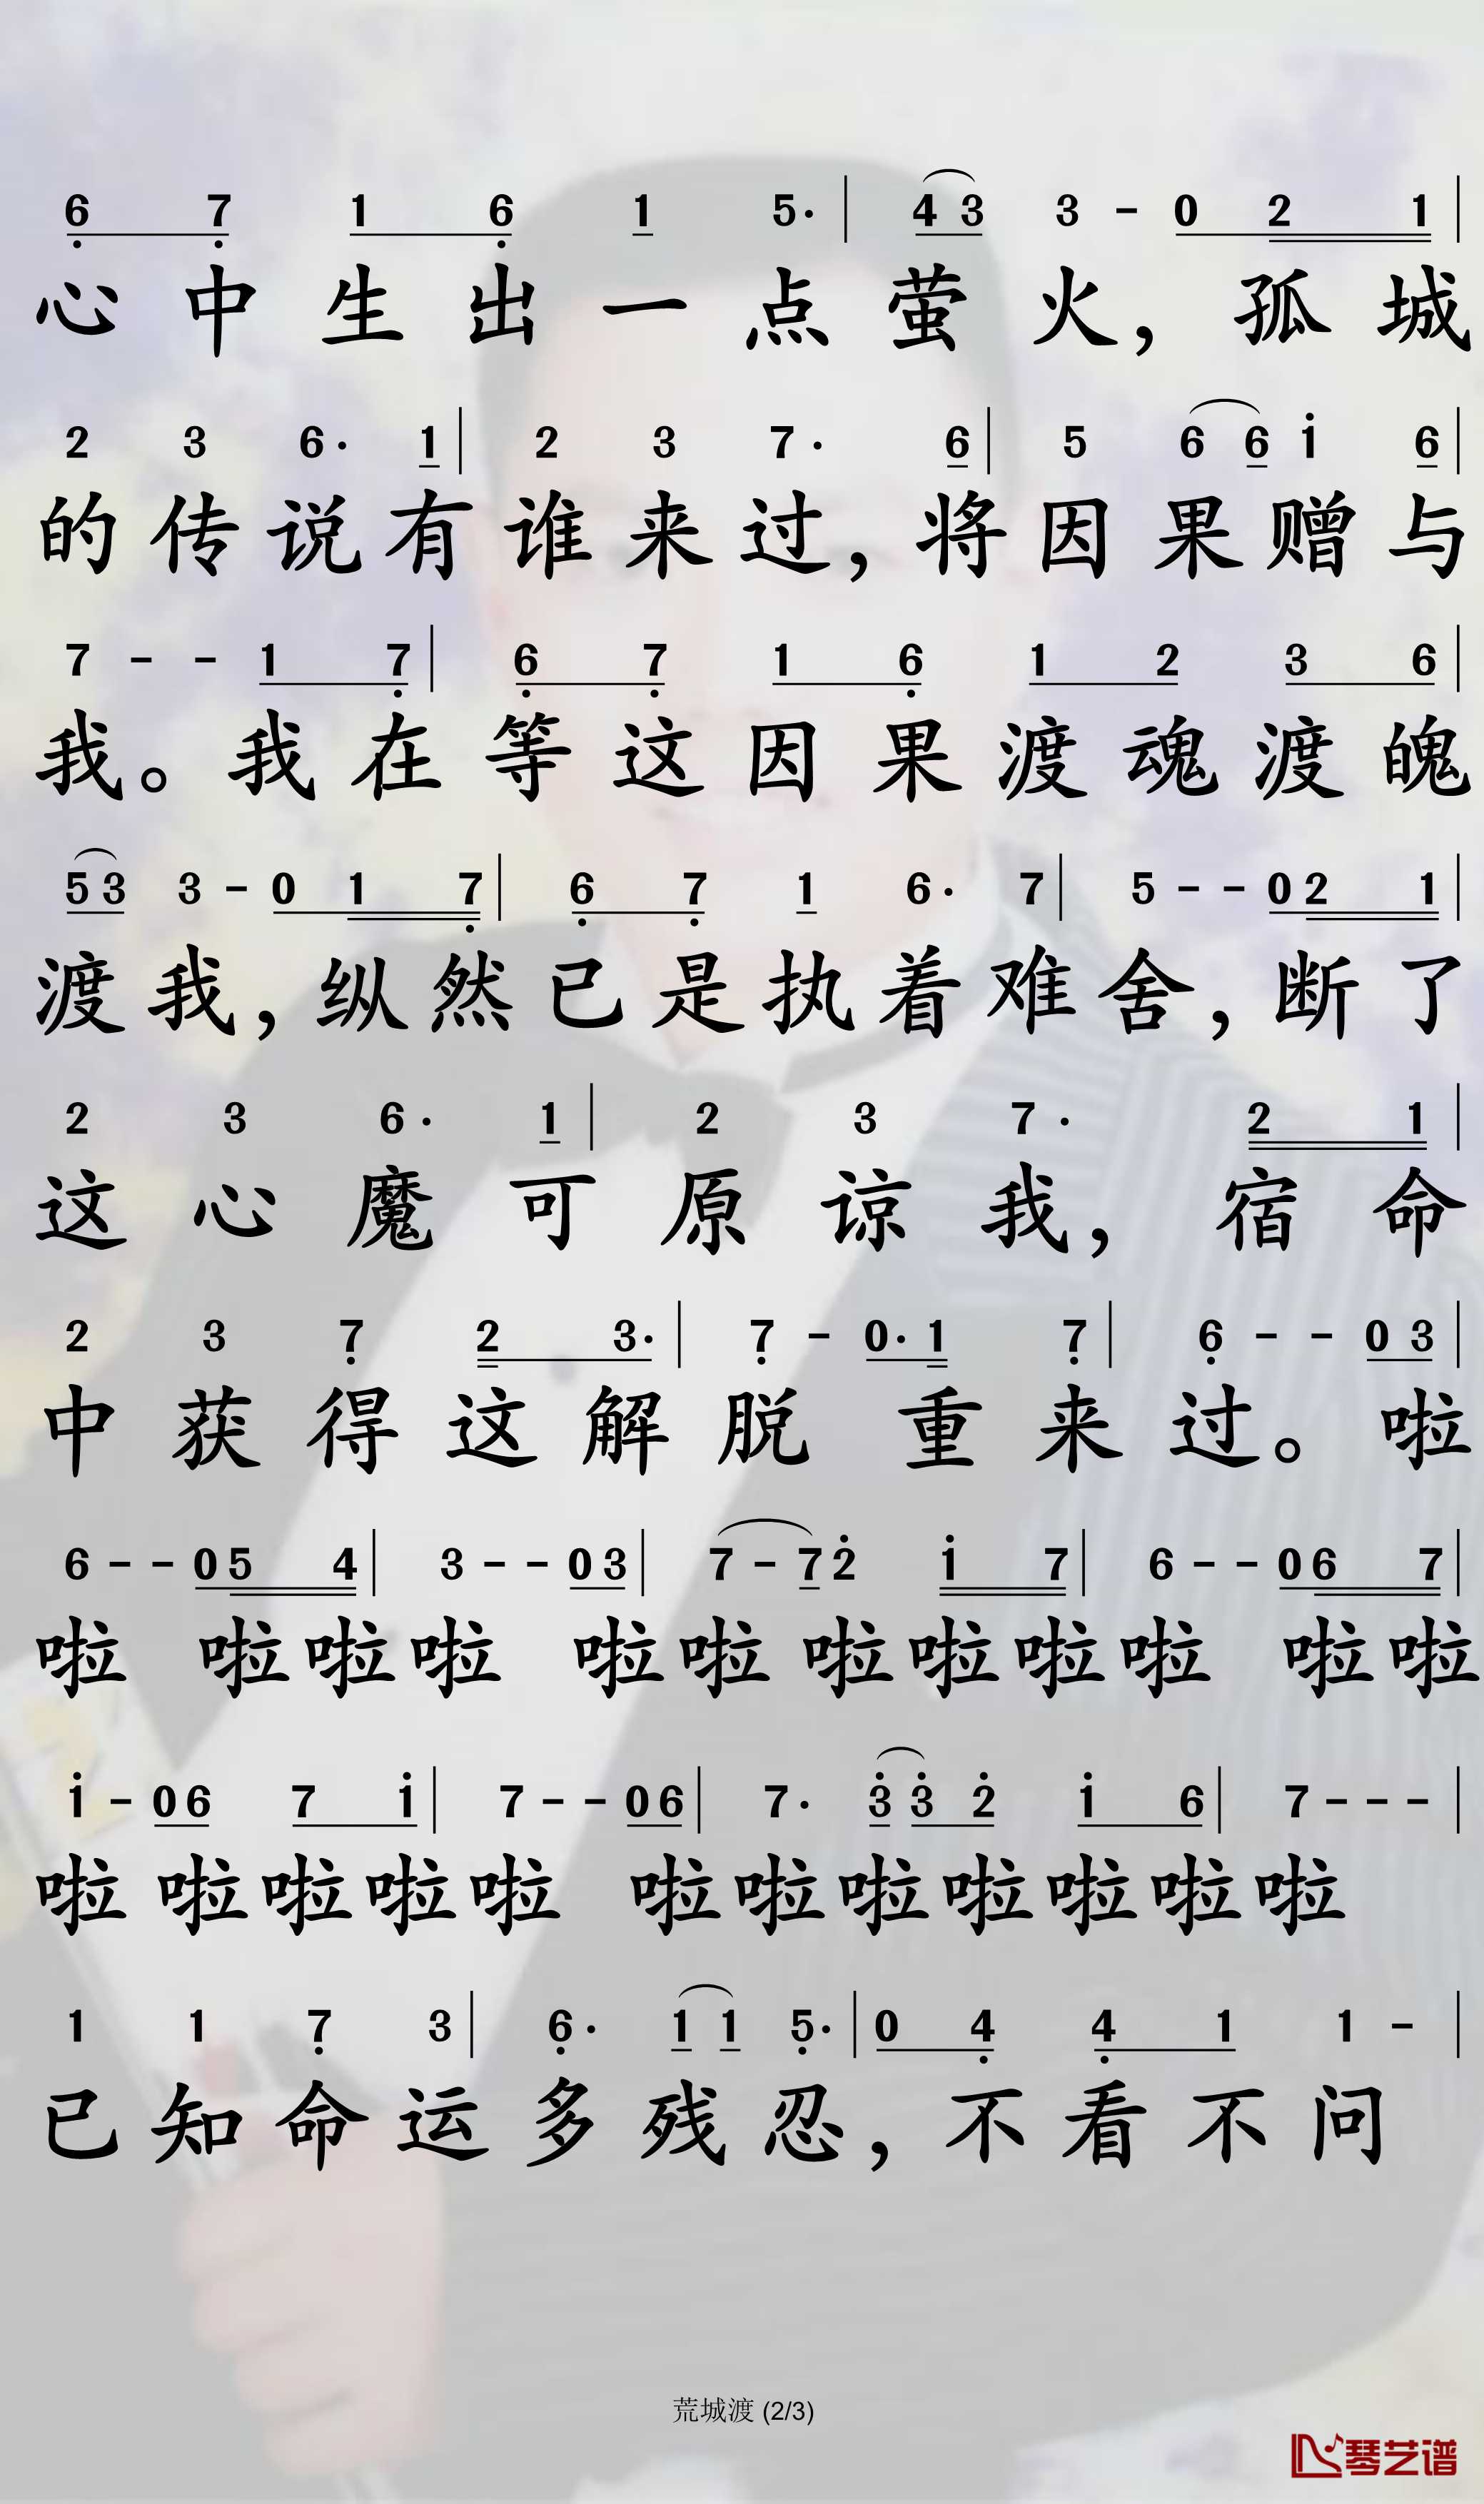 6 7 1 6 1 5· | 4 3 3 - 0 2 1 |
心中生出一点萤火，孤城
2 3 6· 1 | 2 3 7· 6 | 5 6 6 1 6 |
的传说有谁来过，将因果赠与
7 - - 1 7 | 6 7 1 6 1 2 3 6 |
我。我在等这因果渡魂渡魄
5 3 3 - 0 1 7 | 6 7 1 6· 7 | 5 - - 0 2 1 |
渡我，纵然已是执着难舍，断了
2 3 6· 1 | 2 3 7· 2 1 |
这心魔可原谅我，宿命
2 3 7 2 3· | 7 - 0· 1 7 | 6 - - 0 3 |
中获得这解脱 重来过。啦
6 - - 0 5 4 | 3 - - 0 3 | 7 - 7 2 1 7 | 6 - - 0 6 7 |
啦 啦啦啦 啦啦 啦啦啦啦 啦啦
1 - 0 6 7 1 | 7 - - 0 6 | 7· 3 3 2 1 6 | 7 - - - |
啦 啦啦啦啦 啦啦啦啦啦啦啦
1 1 7 3 | 6· 1 1 5· | 0 4 4 1 1 - |
已知命运多残忍，不看不问
荒城渡 (2/3)
琴艺谱